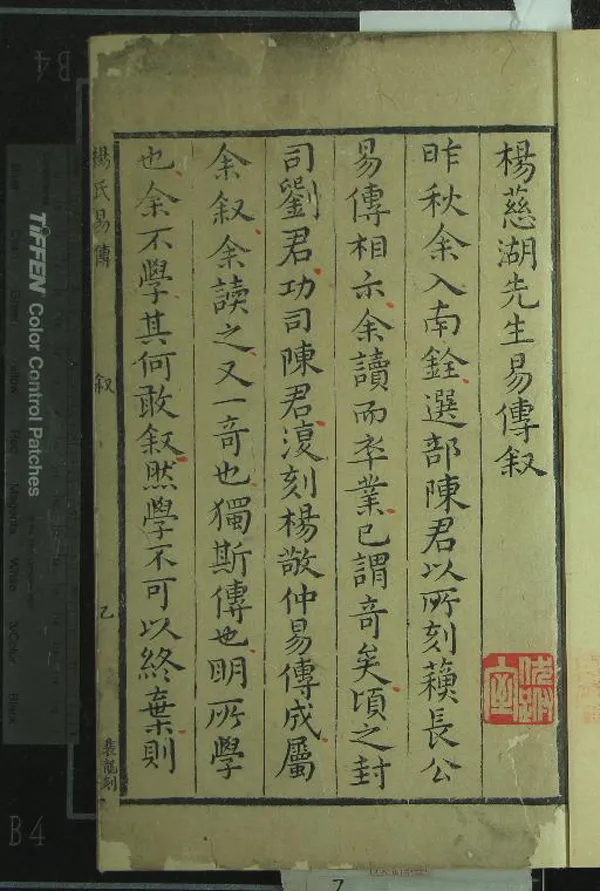 楊慈湖先生易傳叙
昨秋余入南銓選部陳君以所刻蘓長公
易傳相示余讀而卒業已謂奇矣頃之封
司劉君功司陳君復刻楊敬仲易傳成屬
余叙余讀之又一奇也獨斯傳也明所學
也余不學其何敢叙然學不可以終棄則
楊氏易傳
叙
乙
裴龍刻
TIFFEN Color Control Patches
B4
B4
7